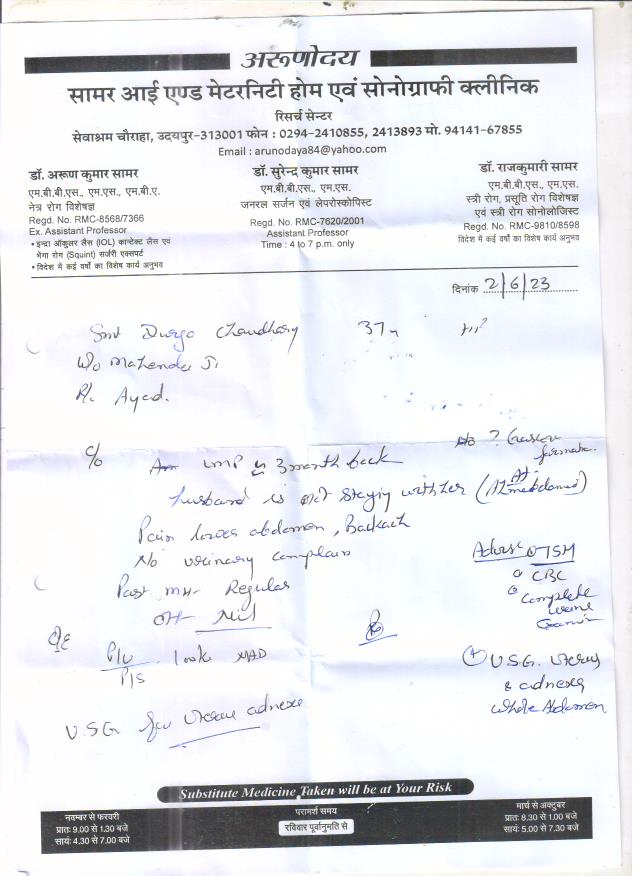 अरूणोदय
सामर आई एण्ड मेटरनिटी होम एवं सोनोग्राफी क्लीनिक
रिसर्च सेन्टर
सेवाश्रम चौराहा, उदयपुर-313001 फोन : 0294-2410855, 2413893 मो. 94141-67855
Email : arunodaya84@yahoo.com
डॉ. अरूण कुमार सामर
एम.बी.बी.एस., एम.एस., एम.बी.ए.
नेत्र रोग विशेषज्ञ
Regd. No. RMC-8568/7366
Ex. Assistant Professor
• इन्द्रा ऑकुलर लैंस (IOL) कान्टेक्ट लैंस एवं
भेंगा रोग (Squint) सर्जरी एक्सपर्ट
• विदेश में कई वर्षों का विशेष कार्य अनुभव
डॉ. सुरेन्द्र कुमार सामर
एम.बी.बी.एस., एम.एस.
जनरल सर्जन एवं लेपरोस्कोपिस्ट
Regd. No. RMC-7620/2001
Assistant Professor
Time : 4 to 7 p.m. only
डॉ. राजकुमारी सामर
एम.बी.बी.एस., एम.एस.
स्त्री रोग, प्रसूति रोग विशेषज्ञ
एवं स्त्री रोग सोनोलोजिस्ट
Regd. No. RMC-9810/8598
विदेश में कई वर्षों का विशेष कार्य अनुभव
दिनांक 2/6/23
Smt Durga Choudhary 37y
W/o Mahendra Ji
R/o Ayad.
C/o LMP 3 month back
husband is not staying with her (At Ahmedabad)
Pain lower abdomen, Backach
No urinary complain
Past MH- Regular
OH- Nil
O/E
P/V
P/S
look NAD
U.S.G for uterus adnexa
Advise
CBC
Complete
urine
Examin
U.S.G. uterus
& adnexa
whole Abdomen
Substitute Medicine Taken will be at Your Risk
नवम्बर से फरवरी
प्रातः 9.00 से 1.30 बजे
सायं: 4.30 से 7.00 बजे
परामर्श समय
रविवार पूर्वानुमति से
मार्च से अक्टूबर
प्रातः 8.30 से 1.00 बजे
सायं: 5.00 से 7.30 बजे